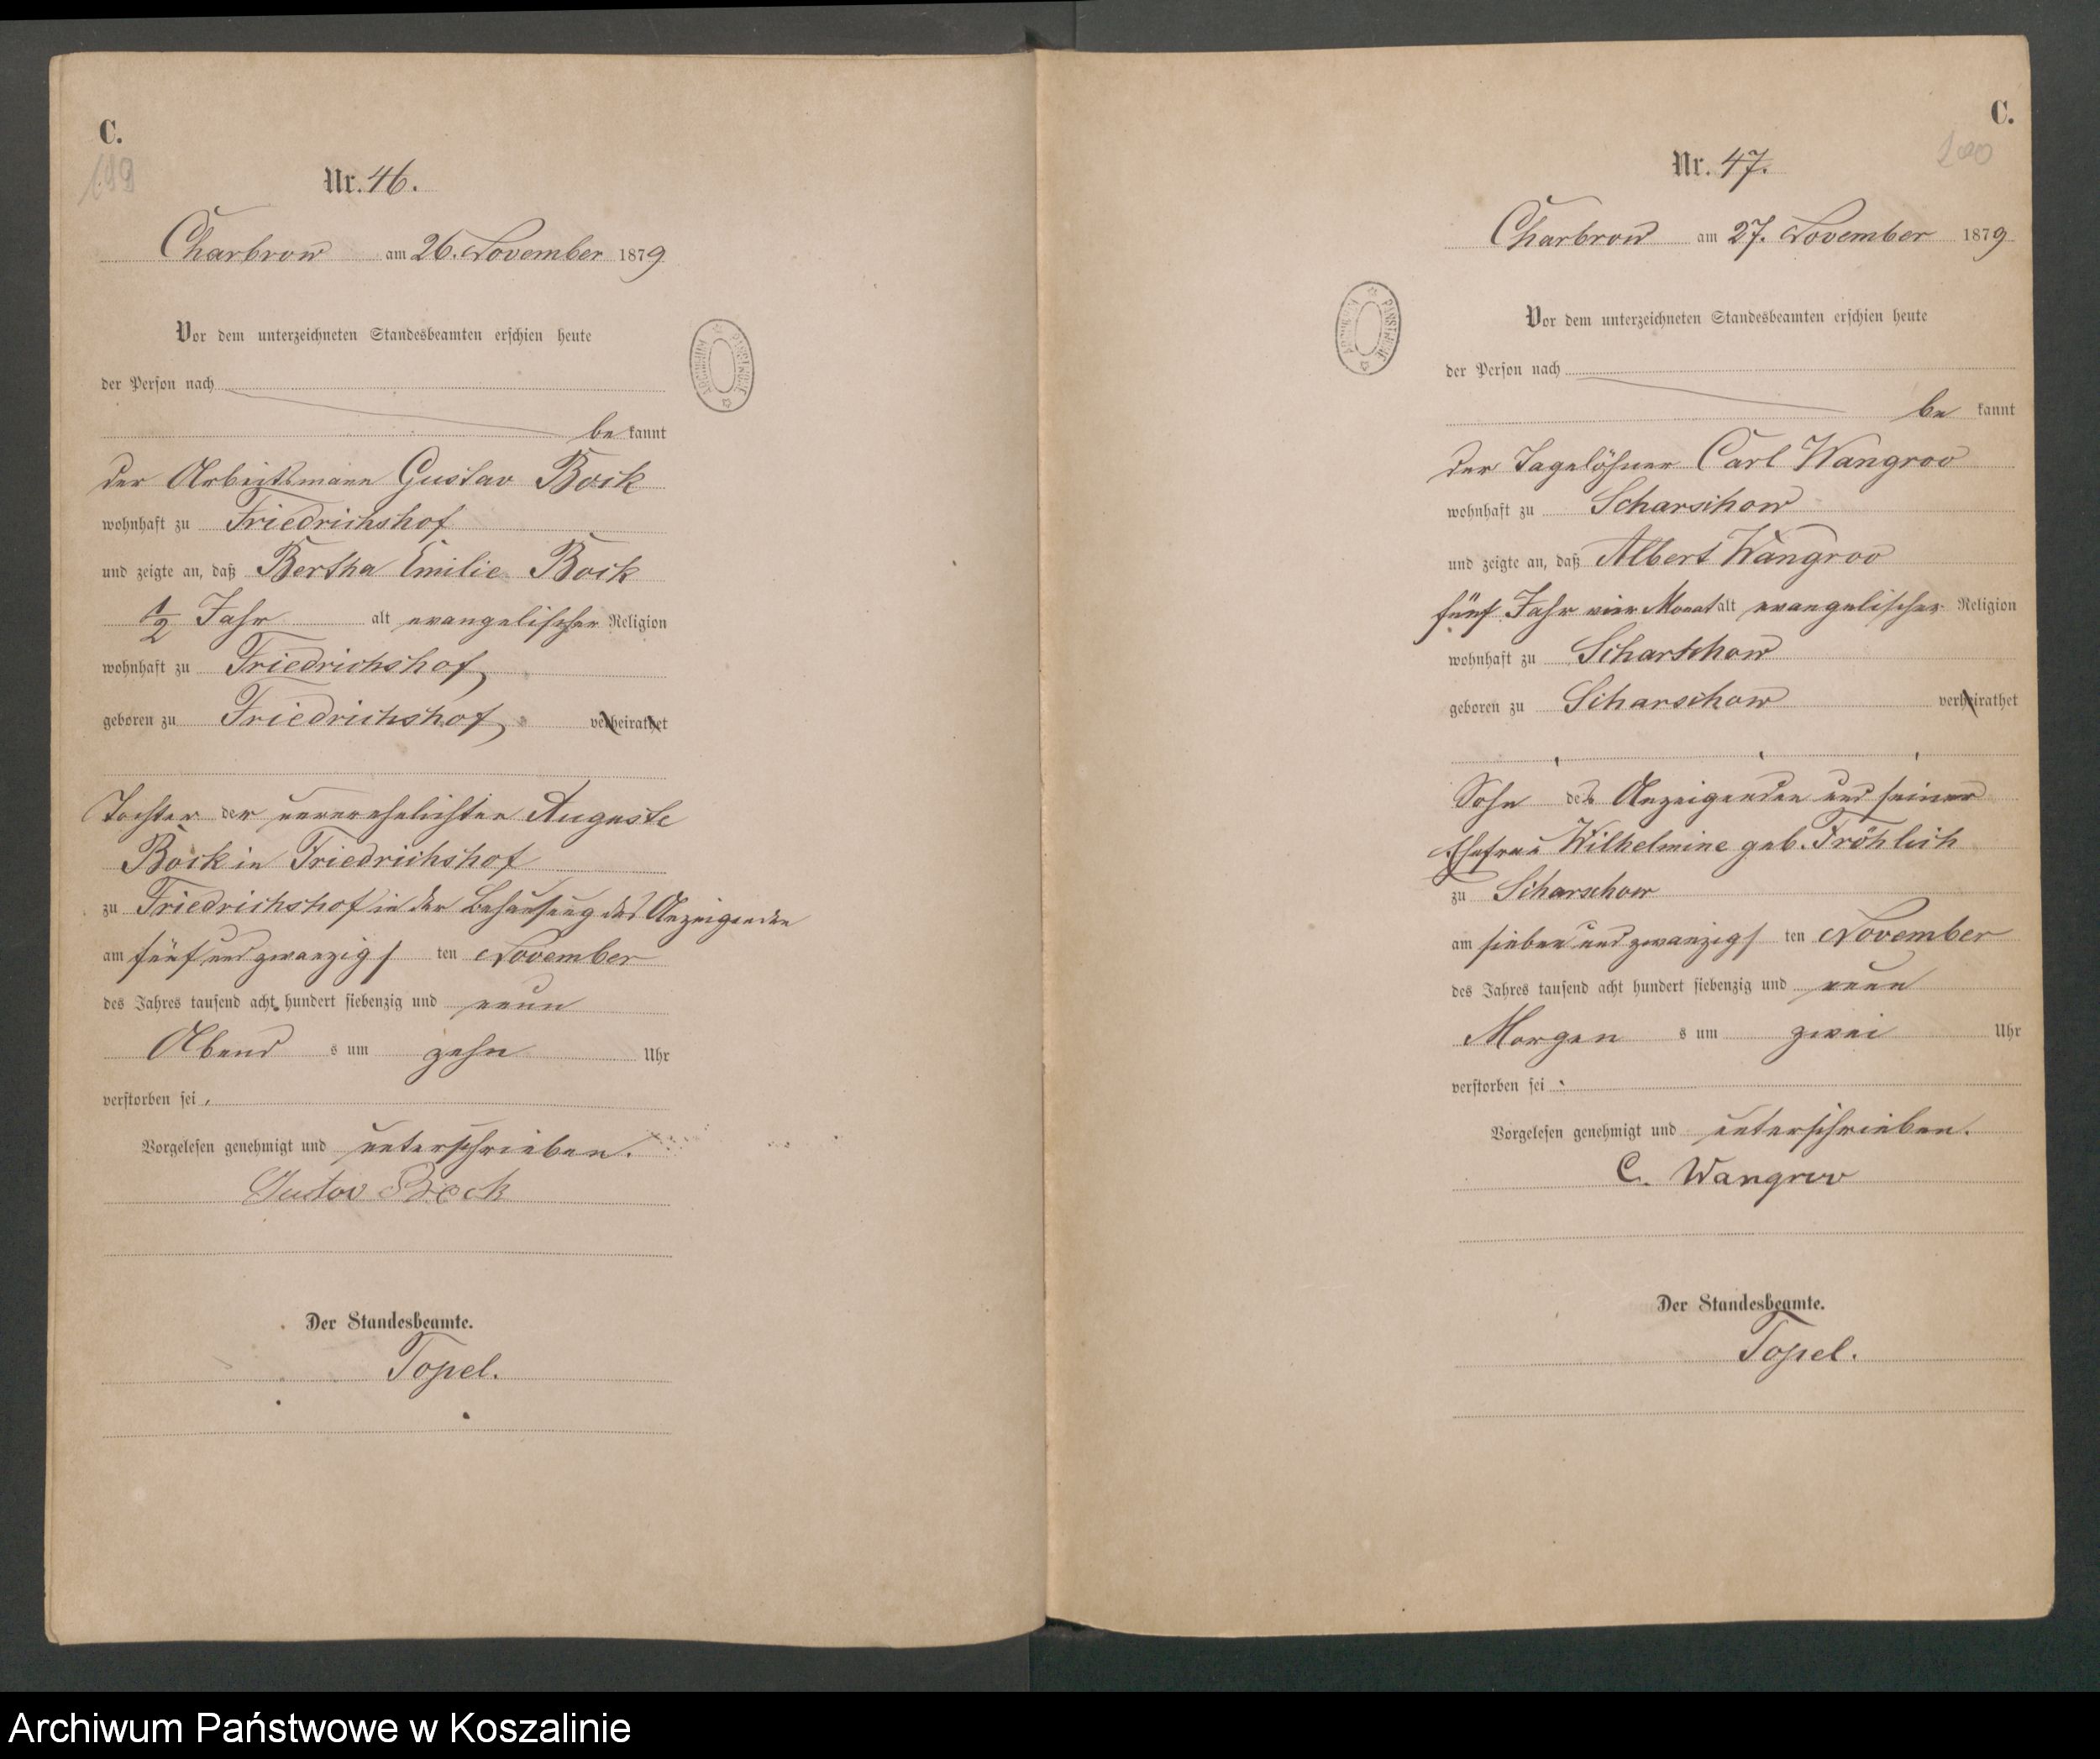 C.
199
Nr. 46.
Charbrow am 26. November 1879
Vor dem unterzeichneten Standesbeamten erschien heute
der Person nach
be kannt
der Arbeitsmann Gustav Bock
wohnhaft zu Friedrichshof
und zeigte an, daß Bertha Emilie Bock
1/2 Jahr alt evangelischer Religion
wohnhaft zu Friedrichshof,
geboren zu Friedrichshof, verheirathet
Tochter der unverehelichten Auguste
Bock in Friedrichshof
zu Friedrichshof in der Behausung des Anzeigenden
am fünf und zwanzigs ten November
des Jahres tausend acht hundert siebenzig und neun
Abend s um zehn Uhr
verstorben sei.
Vorgelesen genehmigt und unterschrieben.
Gustav Bock
Der Standesbeamte.
Topel.
C.
200
Nr. 47.
Charbrow am 27. November 1879
Vor dem unterzeichneten Standesbeamten erschien heute
der Person nach
be kannt
der Tagelöhner Carl Wangroo
wohnhaft zu Scharschow
und zeigte an, daß Albert Wangroo
fünf Jahr vier Monat alt evangelischer Religion
wohnhaft zu Scharschow
geboren zu Scharschow verheirathet
Sohn des Anzeigenden und seiner
Ehefrau Wilhelmine geb. Fröhlich
zu Scharschow
am sieben und zwanzigs ten November
des Jahres tausend acht hundert siebenzig und neun
Morgen s um zwei Uhr
verstorben sei.
Vorgelesen genehmigt und unterschrieben.
C. Wangroo
Der Standesbeamte.
Topel.
Archiwum Państwowe w Koszalinie